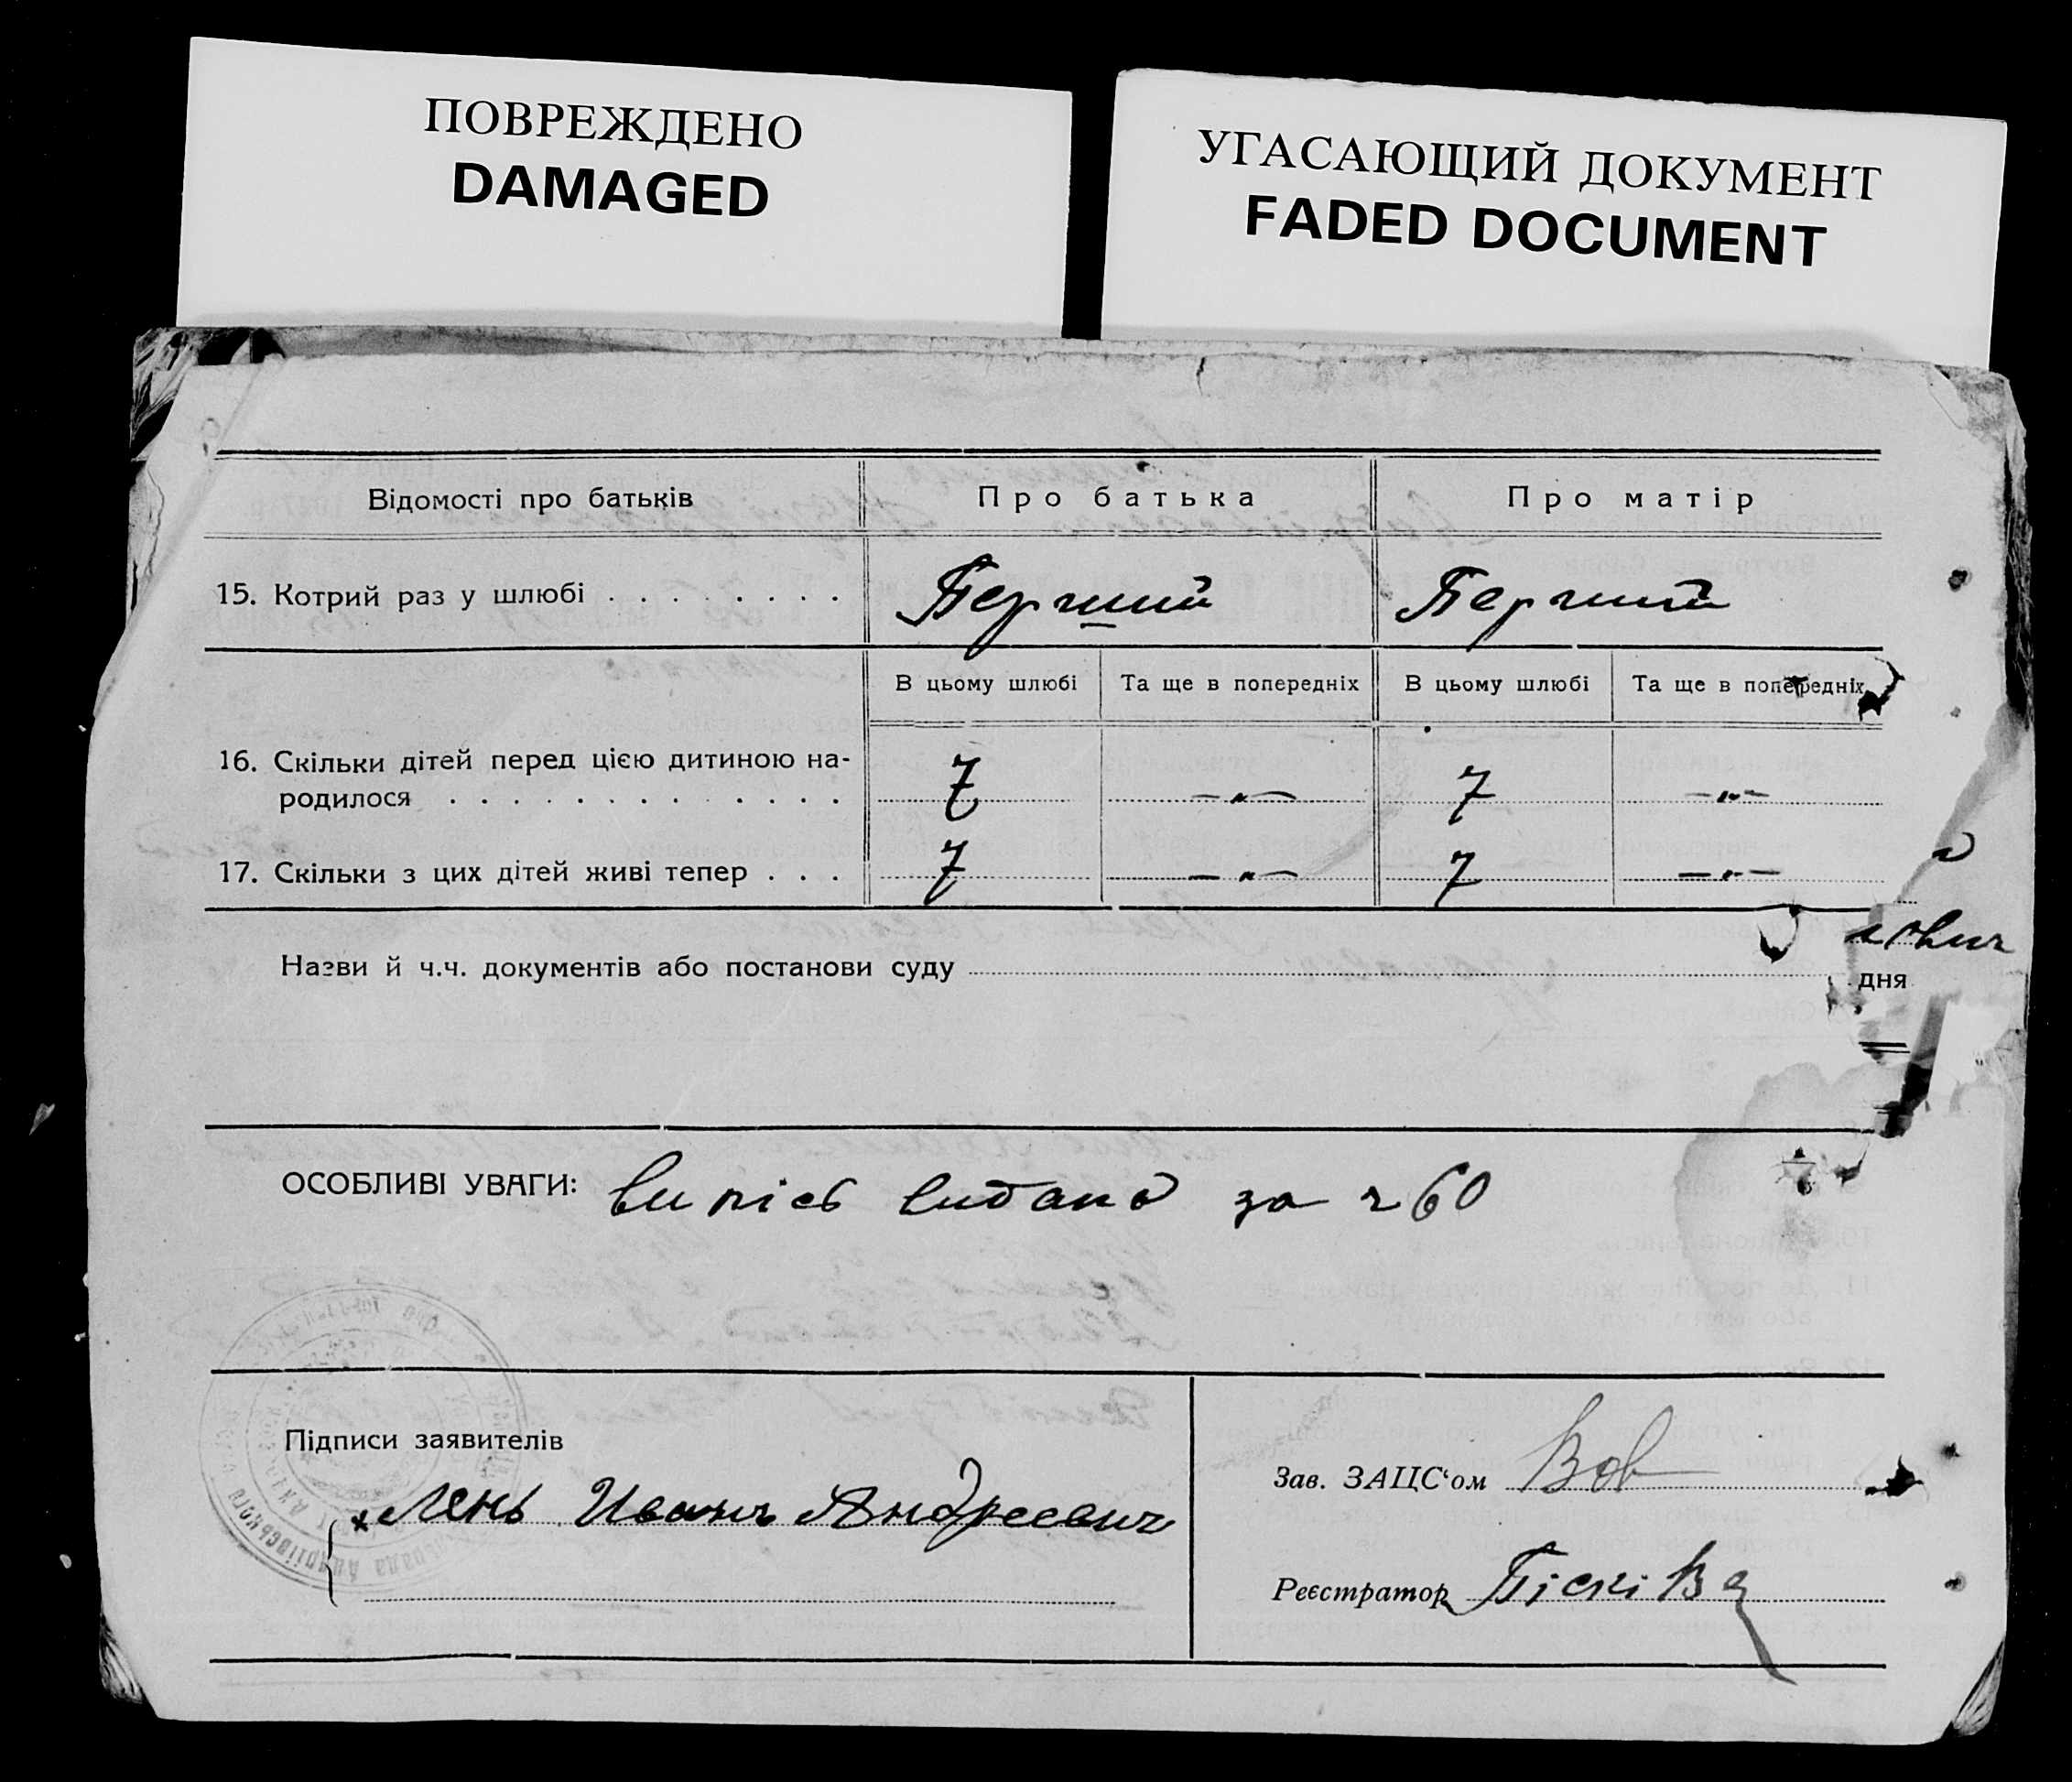 ПОВРЕЖДЕНО
DAMAGED
УГАСАЮЩИЙ ДОКУМЕНТ
FADED DOCUMENT
Відомості про батьків
Про батька
Про матір
15. Котрий раз у шлюбі
Перший
Перший
В цьому шлюбі
Та ще в попередніх
В цьому шлюбі
Та ще в попередніх
16. Скільки дітей перед цією дитиною на-
родилося
7
—"—
7
—"—
17. Скільки з цих дітей живі тепер
7
—"—
7
—"—
Назви й ч.ч. документів або постанови суду
дня
ОСОБЛИВІ УВАГИ: випісь видано за ч 60
Підписи заявителів
Лень Иванъ Андреевич
Зав. ЗАЦС'ом Вов
Реєстратор